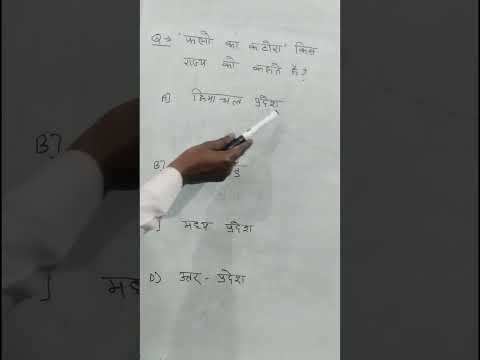 Q→ 'फलो का कटोरा' किस
राज्य को कहते है?
A) हिमाचल प्रदेश
B)
मध्य प्रदेश
D) उत्तर - प्रदेश